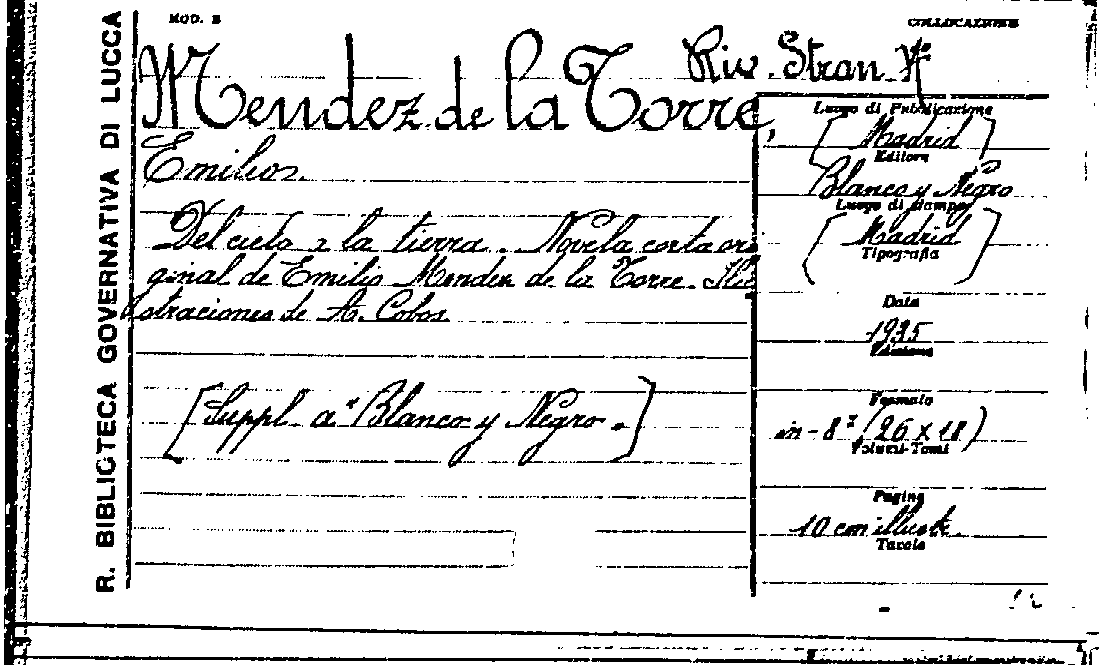 R. BIBLIOTECA GOVERNATIVA DI LUCCA
MOD. B
COLLOCAZIONE
Riv. Stran.
Mendez de la Torre,
Emilio.
Del cielo a la tierra. Novela corta ori
ginal de Emilio Mendez de la Torre. Ilu
straciones de A. Cobos
[Suppl. a "Blanco y Negro".]
Luogo di Pubblicazione
[Madrid]
Editore
Blanco y Negro
Luogo di stampa
[Madrid]
Tipografia
Data
1925
Edizione
Formato
in-8° (26 x 18)
Volumi-Tomi
Pagine
10 cm illustr.
Tavole